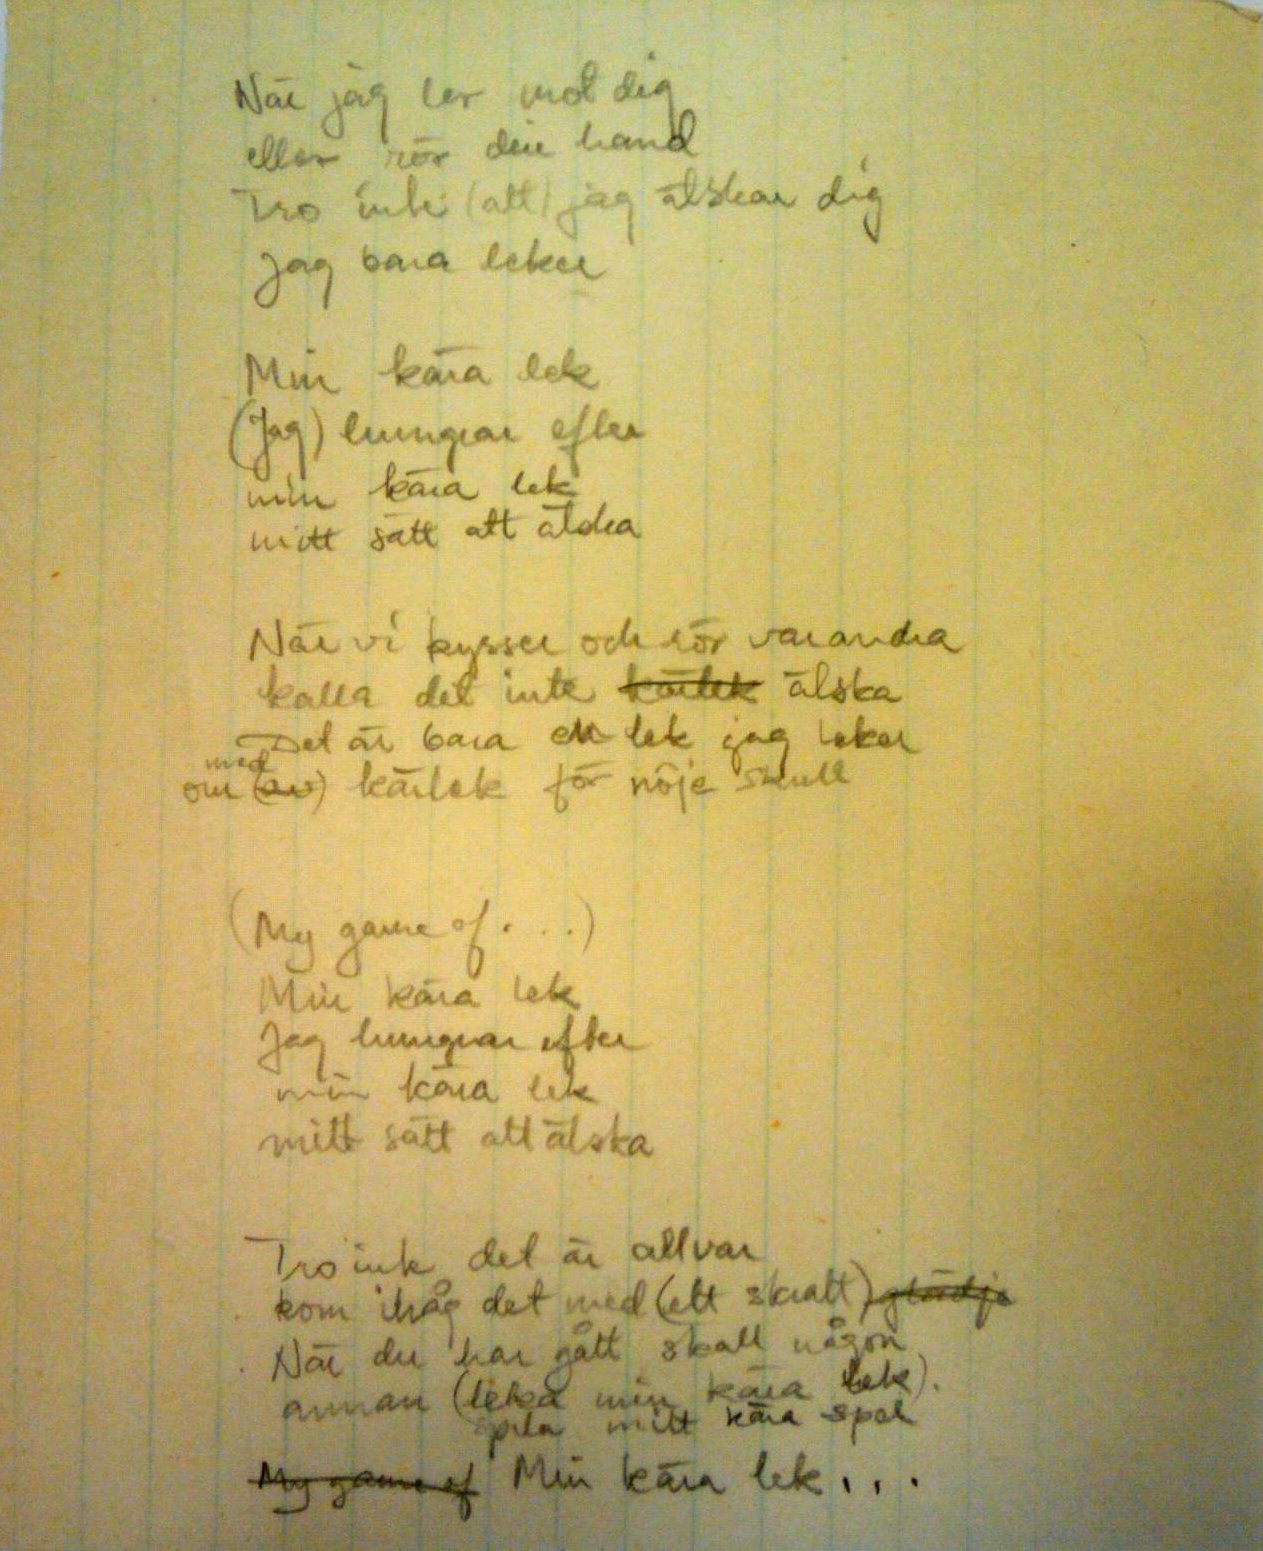 När jag ler mot dig
eller rör din hand
Tro inte (att) jag älskar dig
jag bara leker
Min kära lek
(Jag) hungrar efter
min kära lek
mitt sätt att älska
När vi kysser och rör varandra
kalla det inte kärlek älska
Det är bara en lek jag leker
med
om (av) kärlek för nöje skull
(My game of . . . )
Min kära lek
Jag hungrar efter
min kära lek
mitt sätt att älska
Tro inte det är allvar
kom ihåg det med (ett skratt) glädje
När du har gått skall någon
annan (leka min kära lek).
spela mitt kära spel
My game of Min kära lek . . .